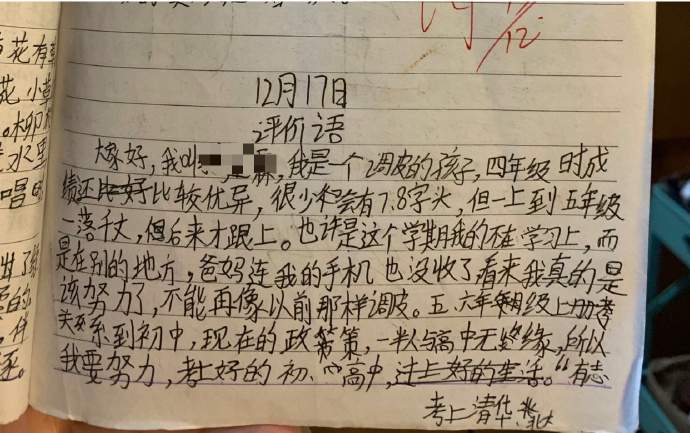 12.
12月17日
评价语
大家好,我叫 霖,我是一个调皮的孩子,四年级时成
绩还比较优异,很少会有7.8字头,但一上到五年级
一落千丈,但后来才跟上。也许是这个学期我的不在学习上,而
是在别的地方,爸妈连我的手机也没收了看来我真的是
该努力了,不能再像以前那样调皮。五.六年级上册考
关系到初中,现在的政策,一半人与高中无缘,所以
我要努力,考上好的初、高中,过上好的生活。“有志
考上清华
花有
花小草
。柳
水里
唱